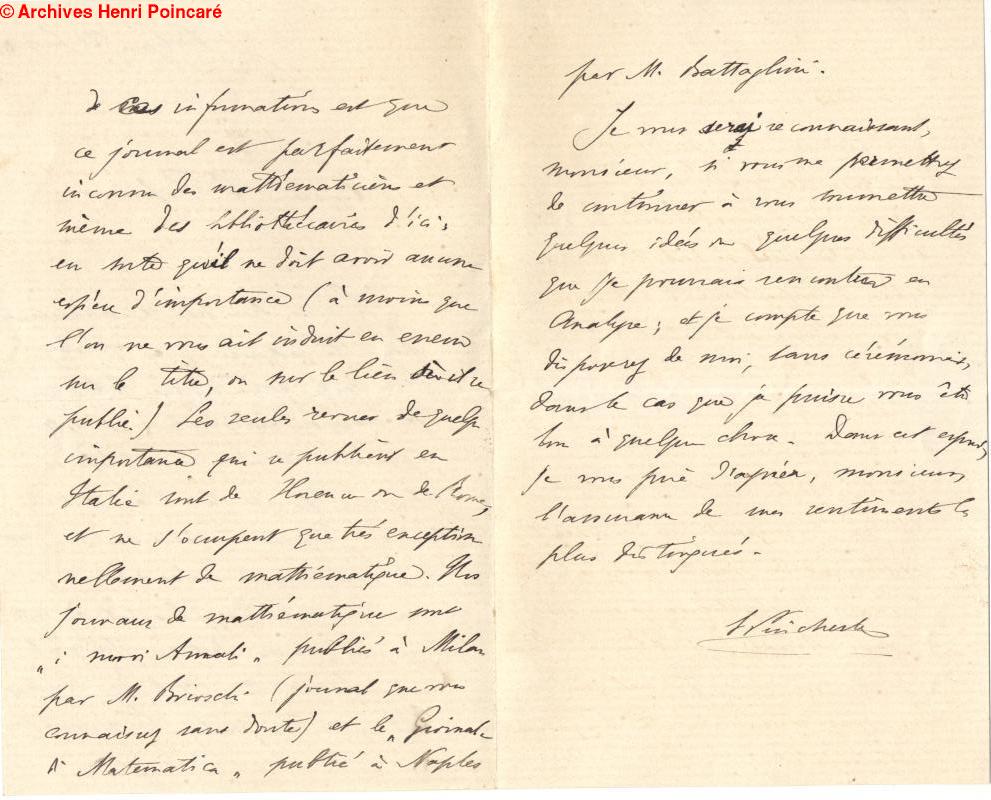 © Archives Henri Poincaré
de ces informations est que
ce journal est parfaitement
inconnu des mathématiciens et
même des bibliothécaires d'ici;
en sorte qu'il ne doit avoir aucune
espèce d'importance (à moins que
l'on ne vous ait induit en erreur
sur le titre, ou sur le lieu où il se
publie.) Les seules revues de quelque
importance qui se publient en
Italie sont de Florence ou de Rome,
et ne s'occupent que très exception
nellement de mathématique. Nos
journaux de mathématique sont
„ i nuovi Annali „ publiés à Milan
par M. Brioschi (journal que vous
connaissez sans doute) et le „ Giornale
di Matematica „ publié à Naples
par M. Battaglini.
Je vous serai reconnaissant,
monsieur, si vous me permettez
de continuer à vous soumettre
quelques idées ou quelques difficultés
que je pourrais rencontrer en
Analyse; et je compte que vous
disposerez de moi, sans cérémonies,
dans le cas que je puisse vous être
bon à quelque chose. Dans cet espoir,
je vous prie d'agréer, monsieur,
l'assurance de mes sentiments les
plus distingués.
S Pincherle